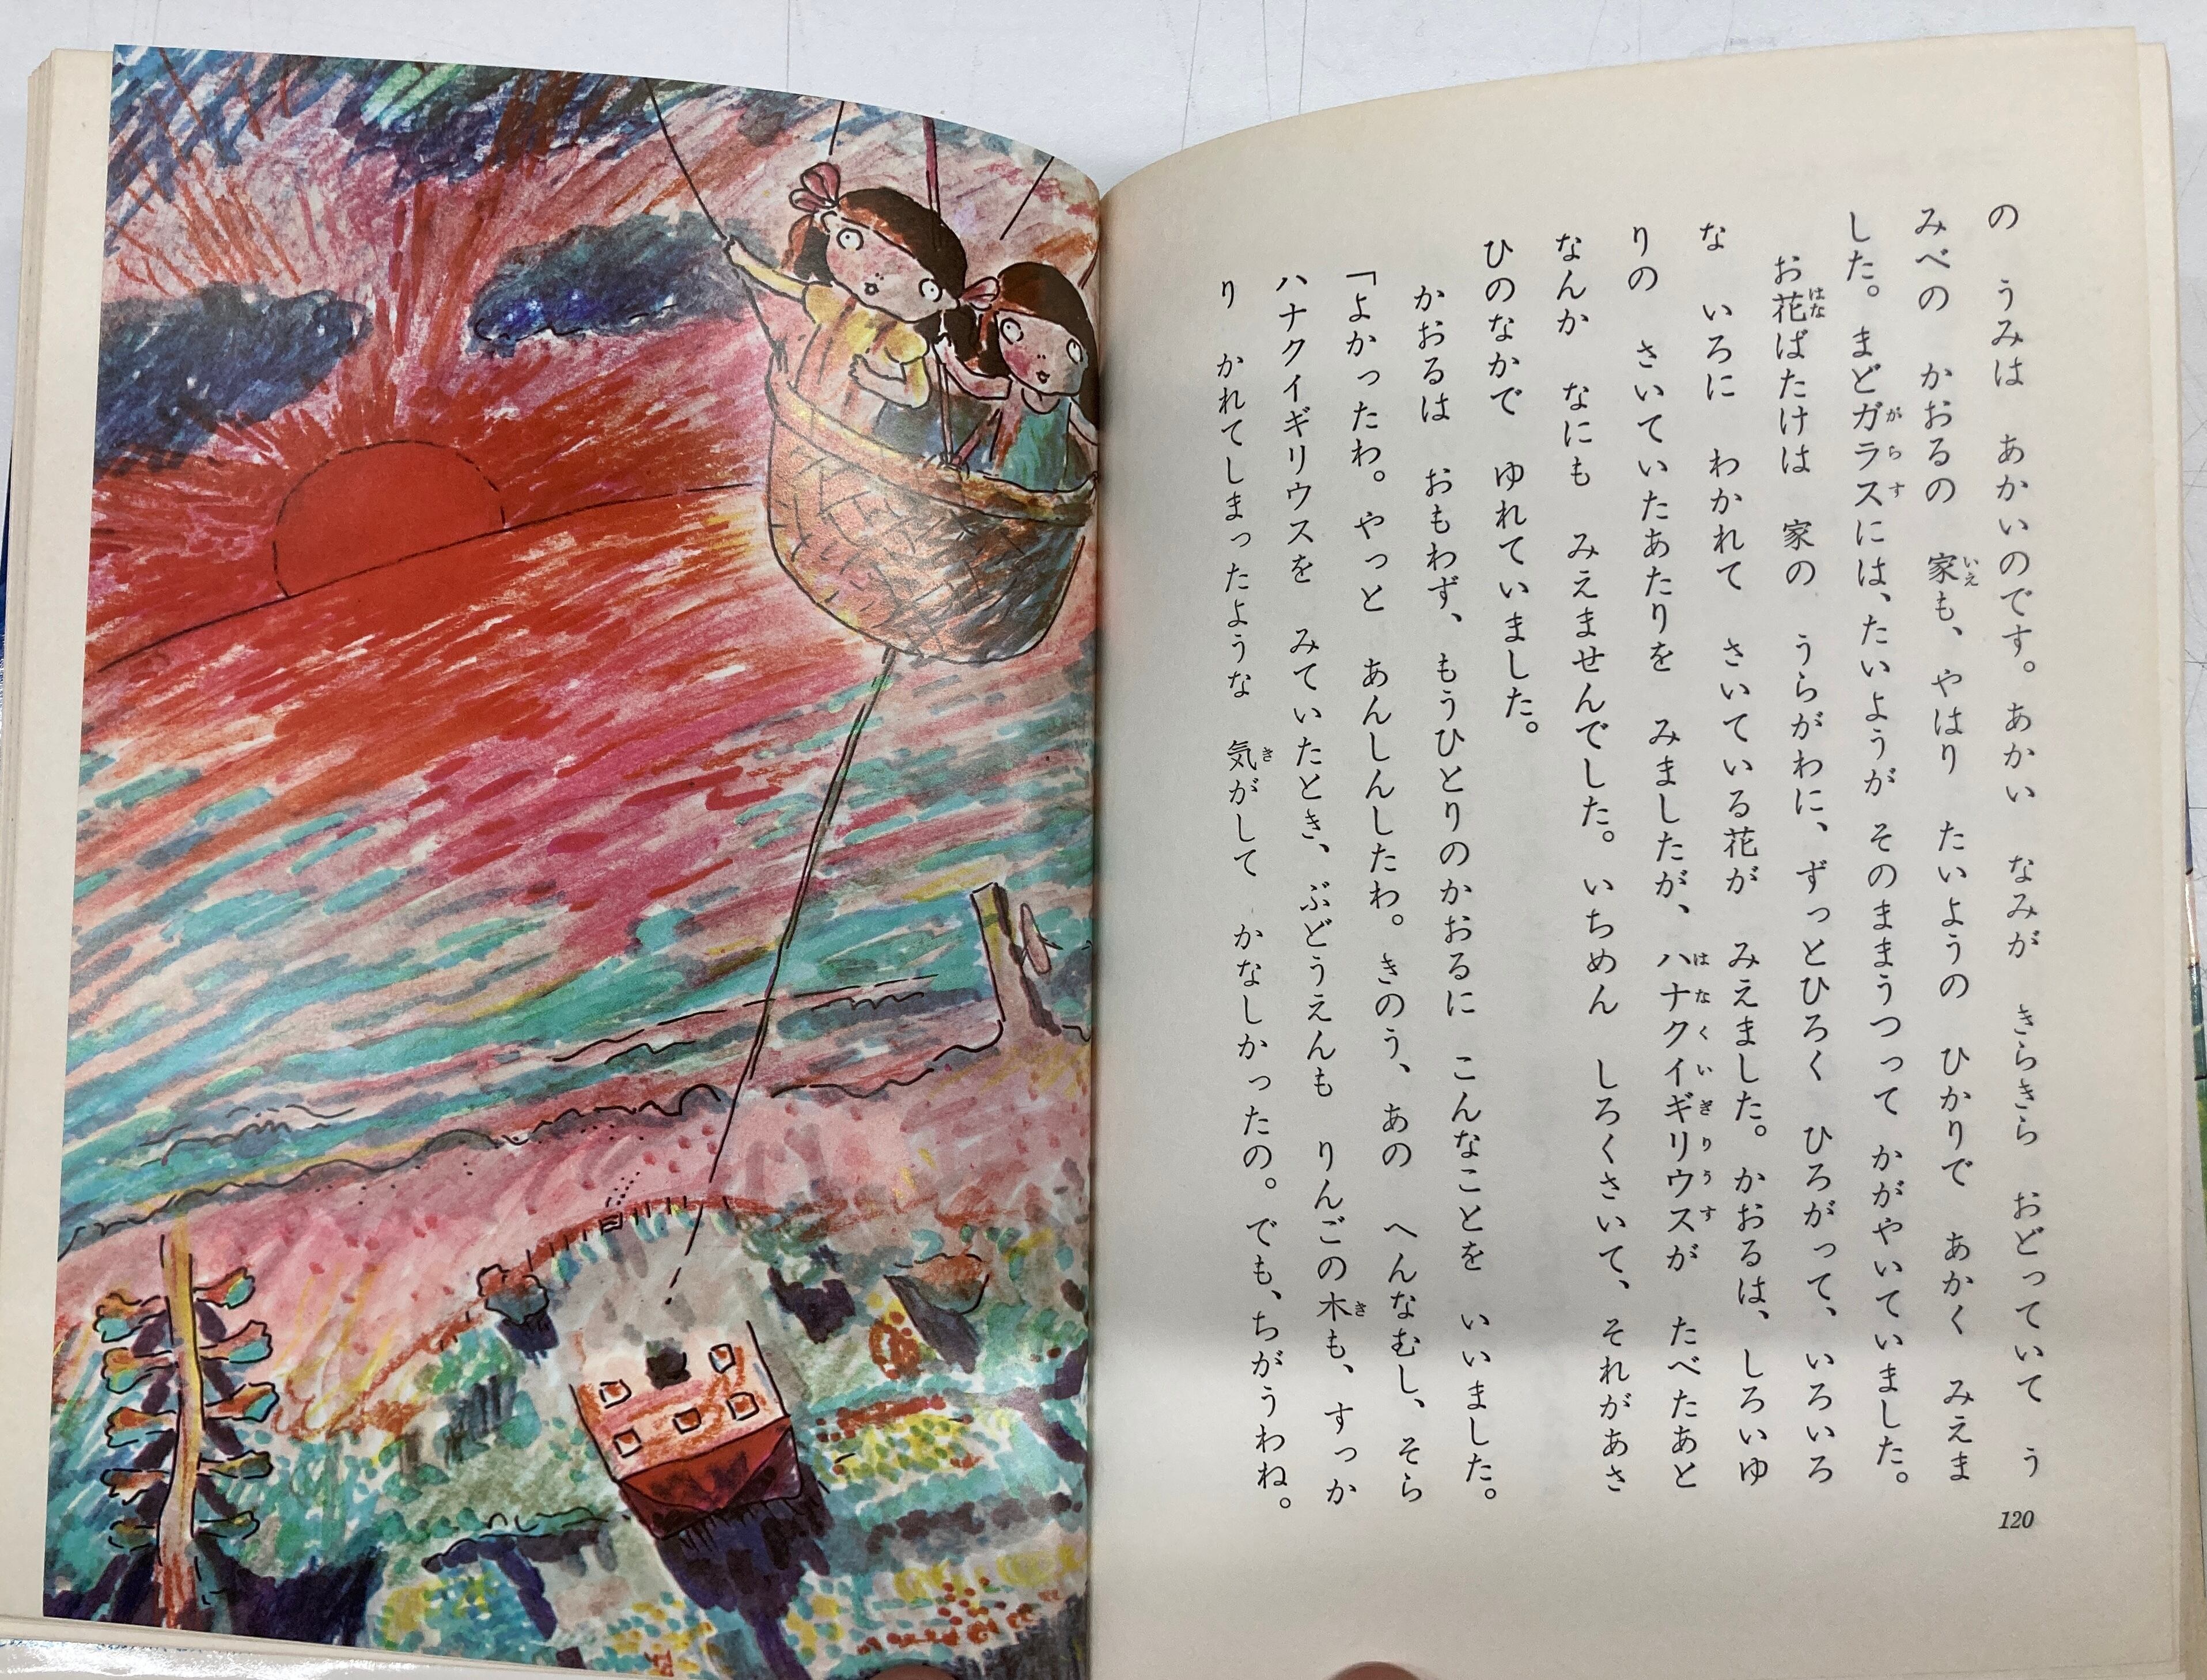 の　うみは　あかいのです。あかい　なみが　きらきら　おどっていて　う
みべの　かおるの　家も、やはり　たいようの　ひかりで　あかく　みえま
した。まどガラスには、たいようが　そのままうつって　かがやいていました。
お花ばたけは　家の　うらがわに、ずっとひろく　ひろがって、いろいろ
な　いろに　わかれて　さいている花が　みえました。かおるは、しろいゆ
りの　さいていたあたりを　みましたが、ハナクイギリウスが　たべたあと
なんか　なにも　みえませんでした。いちめん　しろくさいて、それがあさ
ひのなかで　ゆれていました。
かおるは　おもわず、もうひとりのかおるに　こんなことを　いいました。
「よかったわ。やっと　あんしんしたわ。きのう、あの　へんなむし、そら
ハナクイギリウスを　みていたとき、ぶどうえんも　りんごの木も、すっか
り　かれてしまったような　気がして　かなしかったの。でも、ちがうわね。
120